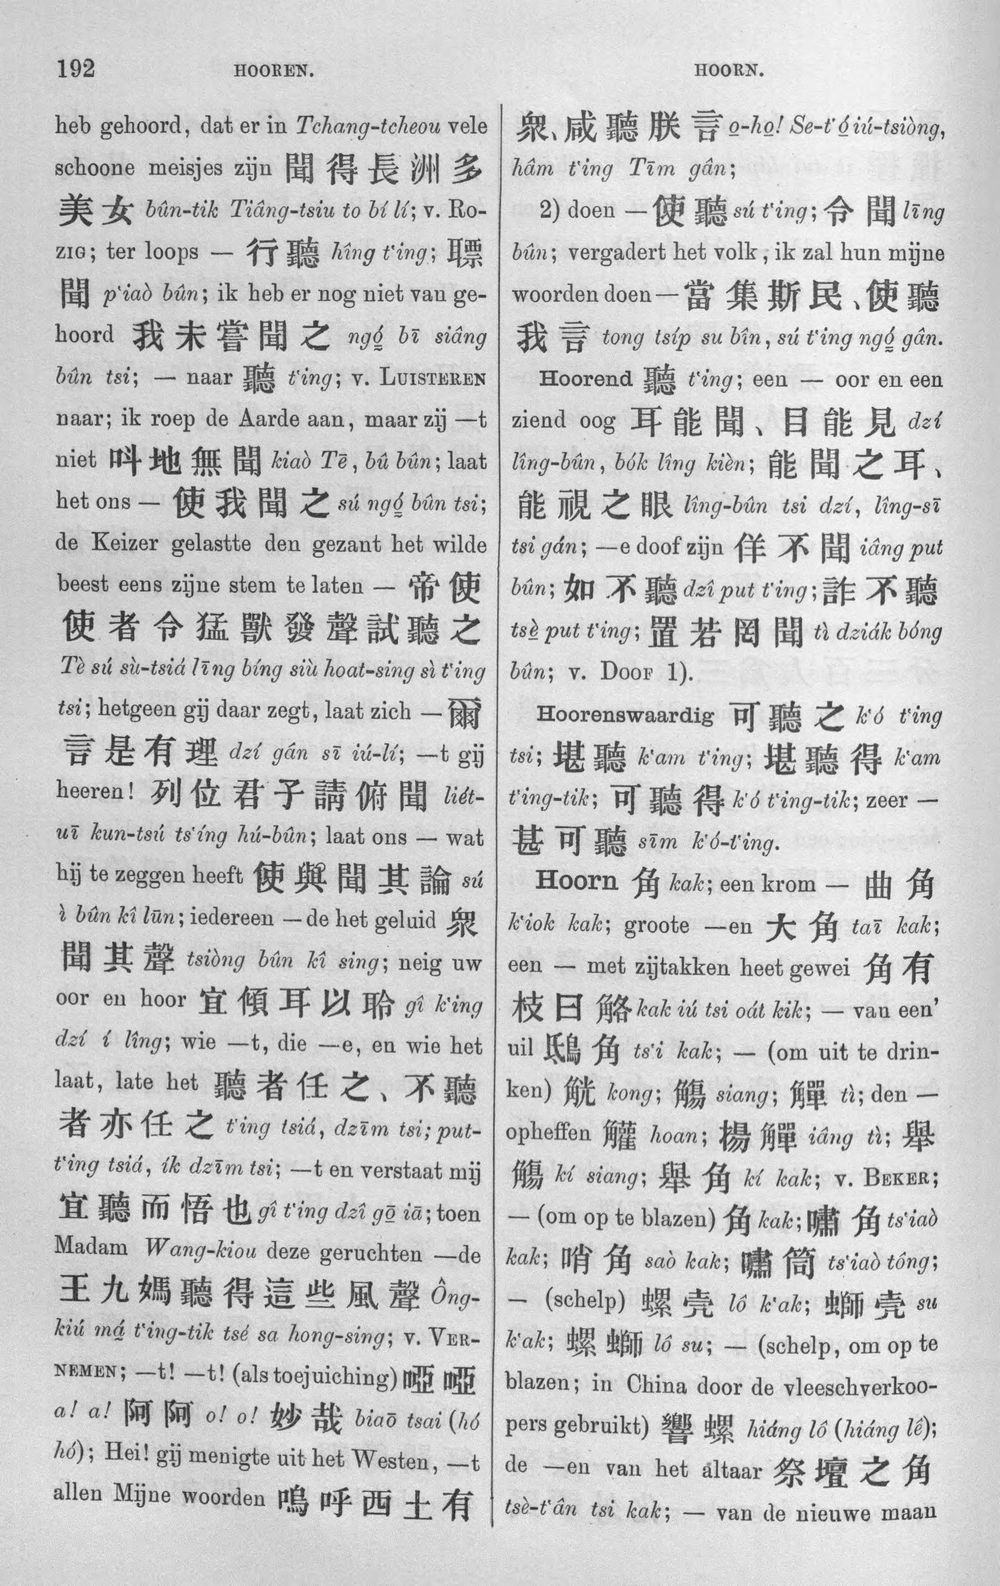 192
HOOREN.
HOORN.
heb gehoord, dat er in Tchang-tcheou vele
schoone meisjes zijn 聞得長洲多
美女 bûn-tik Tiâng-tsiu to bí lí; v. Ro-
ZIG; ter loops — 行聽 hîng t‘ing; 聽
聞 p‘iaò bûn; ik heb er nog niet van ge-
hoord 我未嘗聞之 ngó̤ bī siâng
bûn tsi; — naar 聽 t‘ing; v. LUISTEREN
naar; ik roep de Aarde aan, maar zij —t
niet 呌地無聞 kiaò Tē, bû bûn; laat
het ons — 使我聞之 sú ngó̤ bûn tsi;
de Keizer gelastte den gezant het wilde
beest eens zijne stem te laten — 帝使
使者令猛獸發聲試聽之
Tè sú sù-tsiá līng bíng siù hoat-sing sì t‘ing
tsi; hetgeen gij daar zegt, laat zich — 爾
言是有理 dzí gân sī iú-lí; —t gij
heeren! 列位君子請俯聞 liét-
uī kun-tsú ts‘íng hú-bûn; laat ons — wat
hij te zeggen heeft 使與聞其論 sú
ì bûn kî lūn; iedereen — de het geluid 衆
聞其聲 tsiòng bûn kî sing; neig uw
oor en hoor 宜傾耳以聆 gî k‘ing
dzí í lîng; wie —t, die —e, en wie het
laat, late het 聽者任之、不聽
者亦任之 t‘ing tsiá, dzīm tsi; put-
t‘ing tsiá, ík dzīm tsi; —t en verstaat mij
宜聽而悟也 gî t‘ing dzî gō̤ iā; toen
Madam Wang-kiou deze geruchten —de
王九媽聽得這些風聲 Ông-
kiú má̤ t‘ing-tik tsé sa hong-sing; v. VER-
NEMEN; —t! —t! (als toejuiching) 啞啞
a! a! 阿阿 o! o! 妙哉 biaō tsai (hó
hó); Hei! gij menigte uit het Westen, —t
allen Mijne woorden 嗚呼西土有
衆、咸聽朕言 o̤-ho̤! Se-t‘ó̤ iú-tsiòng,
hâm t‘ing Tīm gân;
2) doen — 使聽 sú t‘ing; 令聞 līng
bûn; vergadert het volk, ik zal hun mijne
woorden doen — 當集斯民、使聽
我言 tong tsíp su bîn, sú t‘ing ngó̤ gân.
Hoorend 聽 t‘ing; een — oor en een
ziend oog 耳能聞、目能見 dzí
lîng-bûn, bók lîng kièn; 能聞之耳、
能視之眼 lîng-bûn tsi dzí, lîng-sī
tsi gán; —e doof zijn 佯不聞 iâng put
bûn; 如不聽 dzî put t‘ing; 詐不聽
tsè̤ put t‘ing; 置若罔聞 tì dziák bóng
bûn; v. DOOF 1).
Hoorenswaardig 可聽之 k‘ó t‘ing
tsi; 堪聽 k‘am t‘ing; 堪聽得 k‘am
t‘ing-tik; 可聽得 k‘ó t‘ing-tik; zeer —
甚可聽 sīm k‘ó-t‘ing.
Hoorn 角 kak; een krom — 曲角
k‘iok kak; groote —en 大角 taī kak;
een — met zijtakken heet gewei 角有
枝曰觡 kak iú tsi oát kik; — van een’
uil 鴟角 ts‘i kak; — (om uit te drin-
ken) 觥 kong; 觴 siang; 觶 tì; den —
opheffen 觶 hoan; 揚觶 iâng tì; 舉
觴 kí siang; 舉角 kí kak; v. BEKER;
— (om op te blazen) 角 kak; 嘯角 ts‘iaò
kak; 哨角 saò kak; 嘯筒 ts‘iaò tông;
— (schelp) 螺壳 lô k‘ak; 螄壳 su
k‘ak; 螺螄 lô su; — (schelp, om op te
blazen; in China door de vleeschverkoo-
pers gebruikt) 響螺 hiáng lô (hiáng lê);
de —en van het altaar 祭壇之角
tsè-t‘ân tsi kak; — van de nieuwe maan